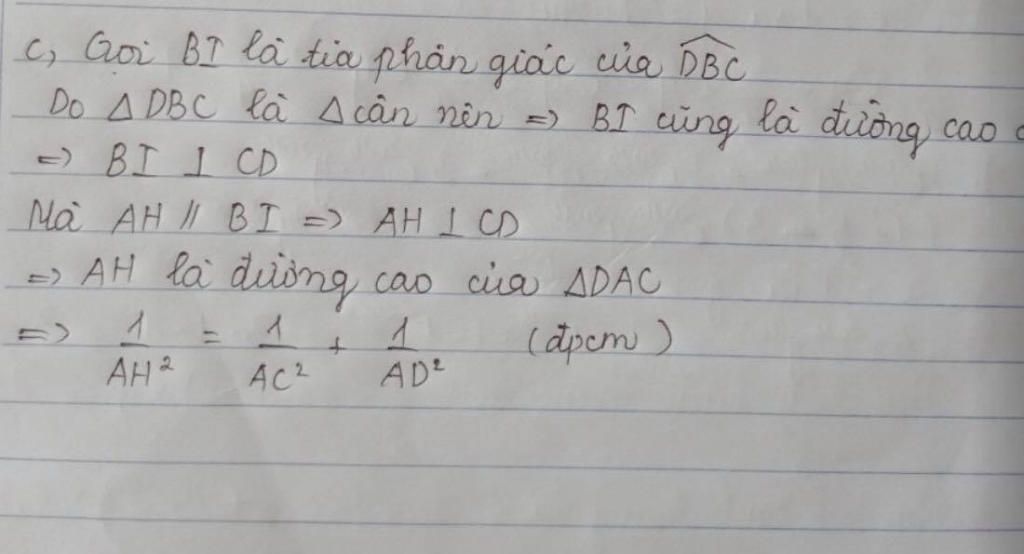 c, Gọi BI là tia phân giác của \widehat{DBC}
Do △DBC là △cân nên => BI cũng là đường cao
=> BI ⊥ CD
Mà AH // BI => AH ⊥ CD
=> AH là đường cao của △DAC
=> 1/AH² = 1/AC² + 1/AD² (đpcm)